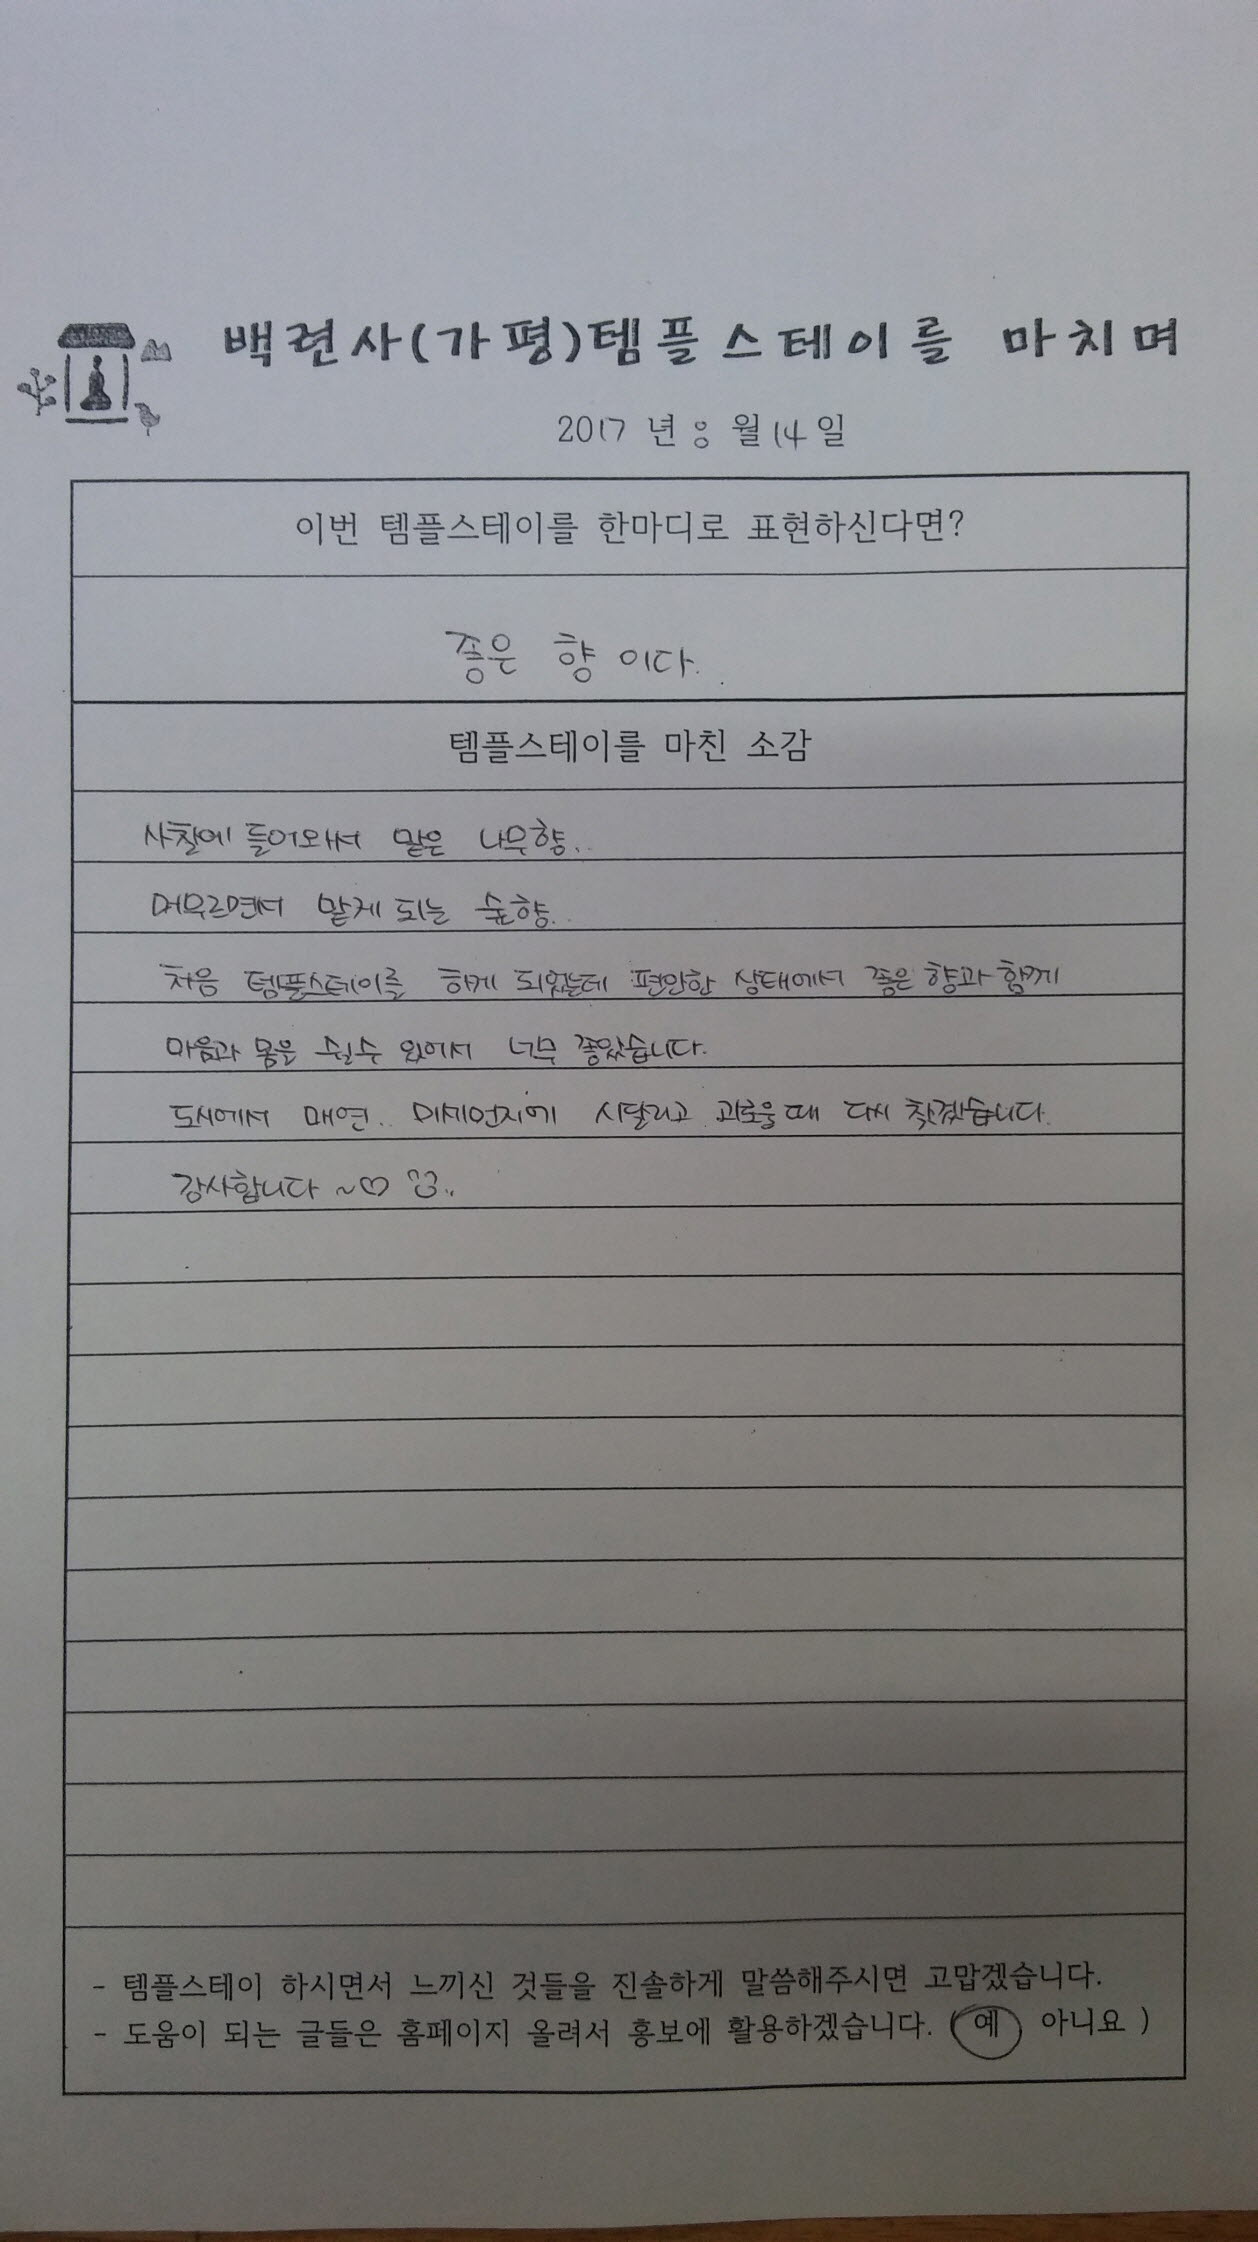 백련사(가평)템플스테이를 마치며
2017 년 8 월 14 일
이번 템플스테이를 한마디로 표현하신다면?
좋은 향 이다.
템플스테이를 마친 소감
사찰에 들어와서 맡은 나무향..
머무르면서 맡게 되는 숲향..
처음 템플스테이를 하게 되었는데 편안한 상태에서 좋은 향과 함께
마음과 몸을 쉴수 있어서 너무 좋았습니다.
도시에서 매연.. 미세먼지에 시달리고 괴로울때 다시 찾겠습니다.
감사합니다 ~♡
- 템플스테이 하시면서 느끼신 것들을 진솔하게 말씀해주시면 고맙겠습니다.
- 도움이 되는 글들은 홈페이지 올려서 홍보에 활용하겠습니다. ( 예 아니요 )